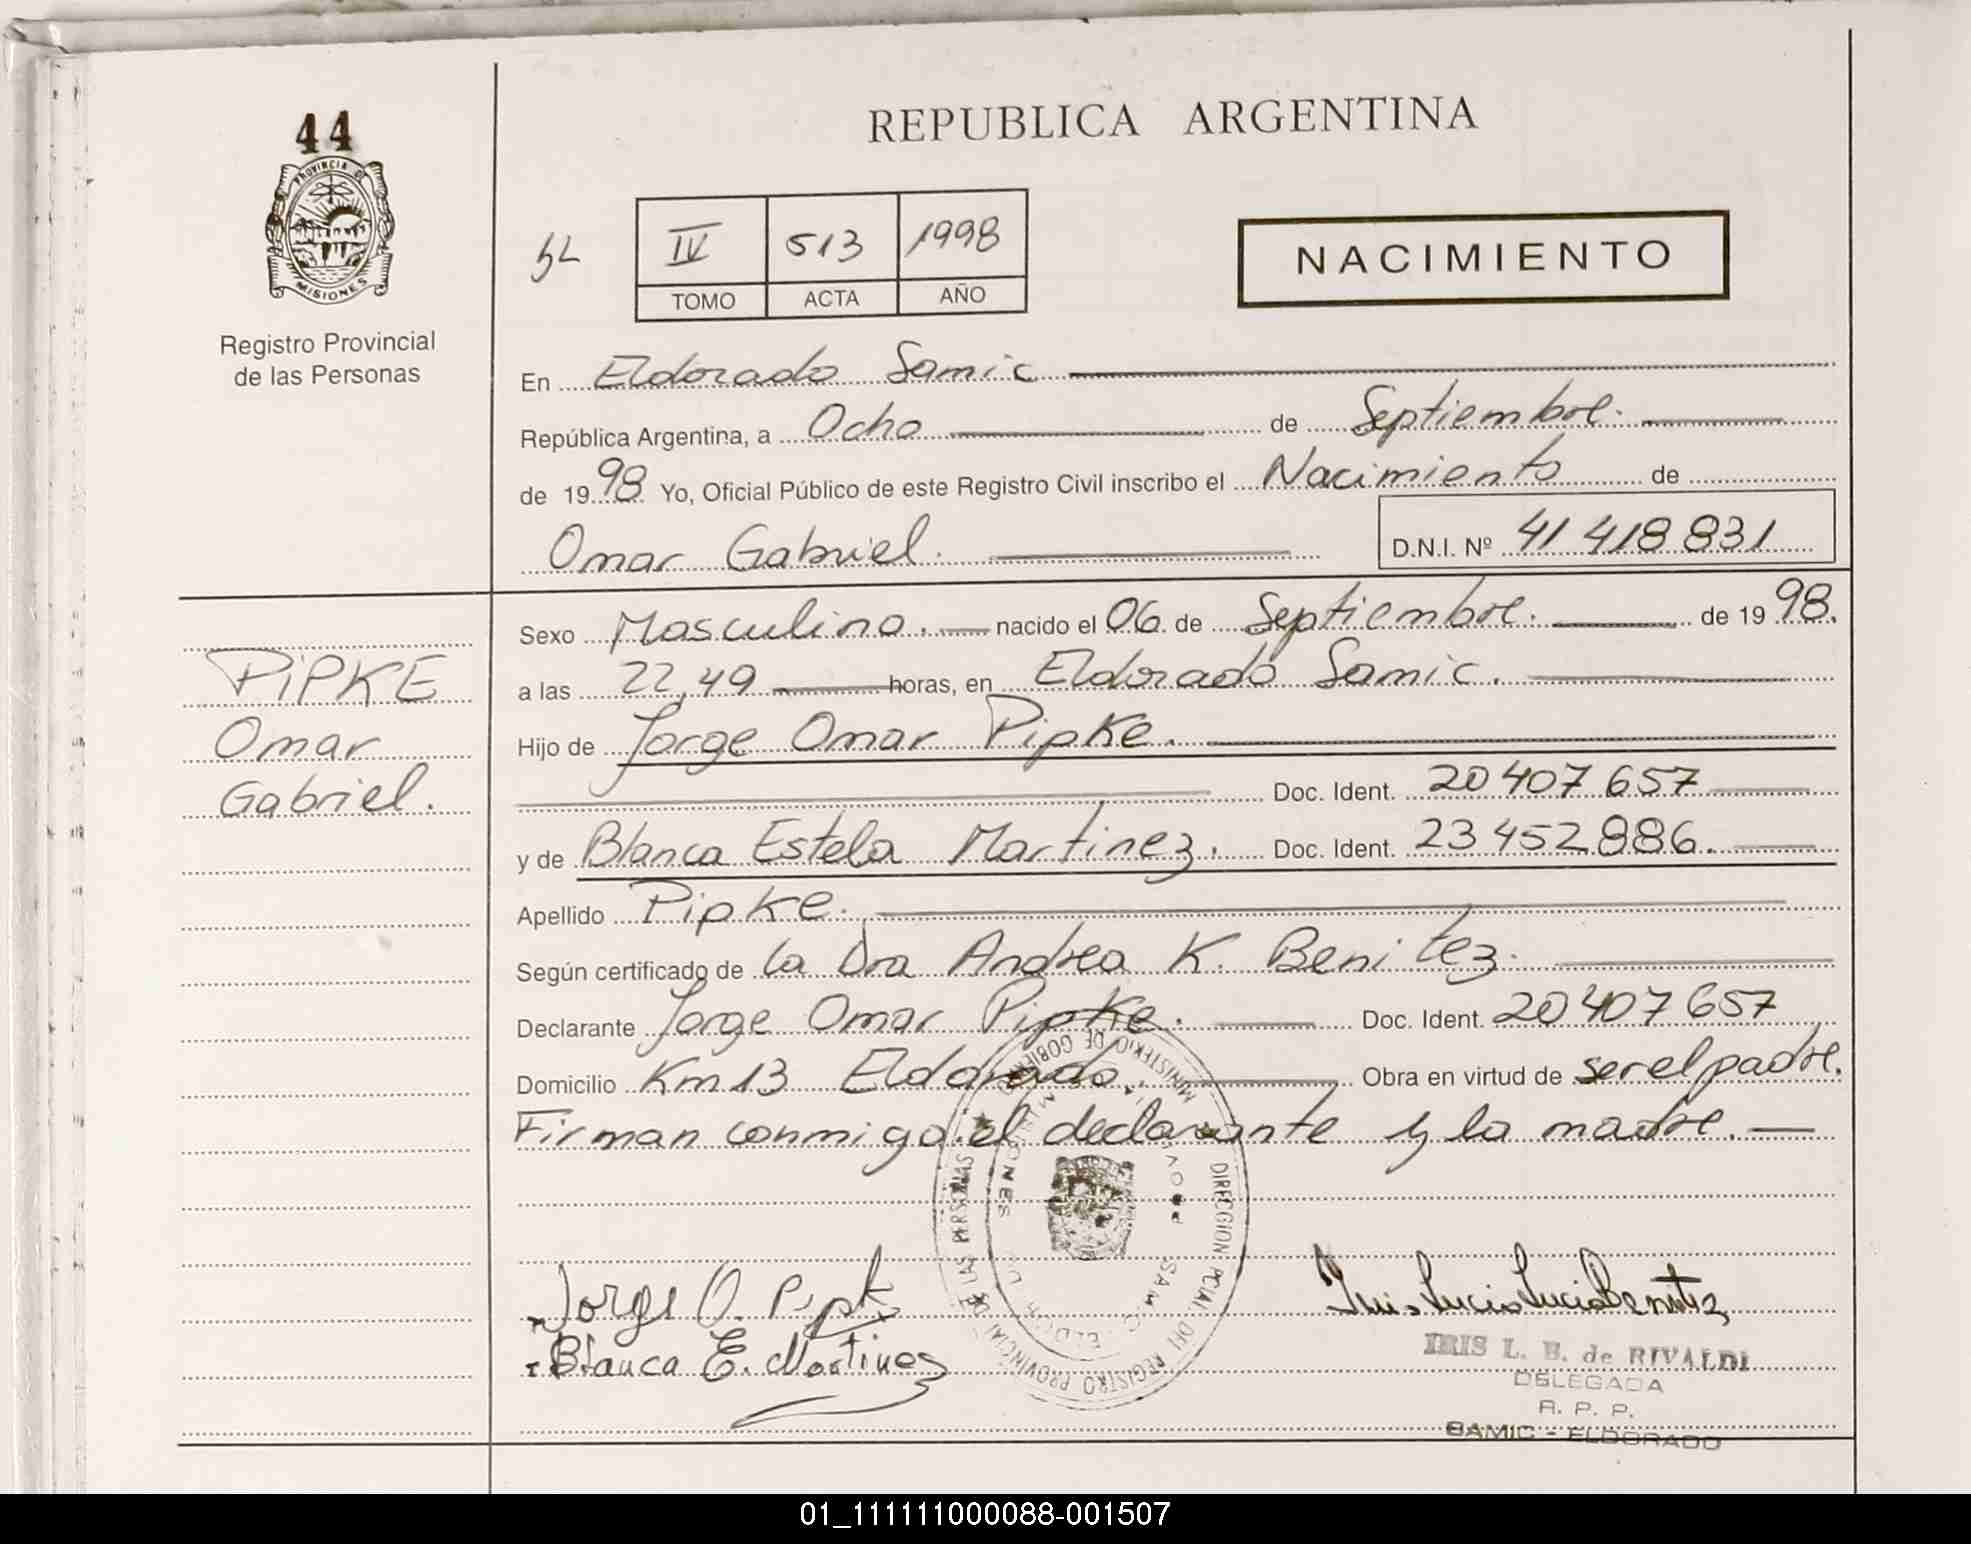 44
PROVINCIA DE
MISIONES
Registro Provincial
de las Personas
REPUBLICA ARGENTINA
IV 513 1998
TOMO ACTA AÑO
NACIMIENTO
En Eldorado Samic
República Argentina, a Ocho de Septiembre.
de 1998 Yo, Oficial Público de este Registro Civil inscribo el Nacimiento de
Omar Gabriel. D.N.I. Nº 41 418 831
PiPKE
Omar
Gabriel.
Sexo Masculino. nacido el 06 de Septiembre. de 1998.
a las 22,49 horas, en Eldorado Samic.
Hijo de Jorge Omar Pipke.
Doc. Ident. 20 407 657
y de Blanca Estela Martinez. Doc. Ident. 23 452 886.
Apellido Pipke.
Según certificado de la Dra Andrea K. Benitez.
Declarante Jorge Omar Pipke. Doc. Ident. 20 407 657
Domicilio Km 13 Eldorado. Obra en virtud de ser el padre.
Firman conmigo el declarante y la madre.
MINISTERIO DE GOBIERNO
DIRECCION PCIAL. DEL REGISTRO PROVINCIAL DE LAS PERSONAS
Jorge O. Pipke
Blanca E. Martinez
IRIS L. B. de RIVALDI
DELEGADA
R. P. P.
SAMIC - ELDORADO
01_111111000088-001507